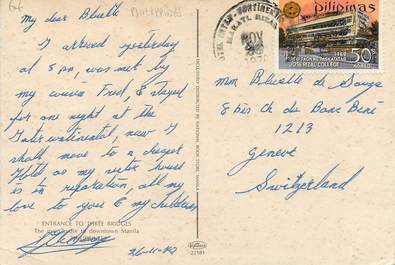 PHILIPPINES
My dear Bluette
I arrived yesterday
at 8 pm, was met by
my cousin Fred, & stayed
for one night at the
Intercontinental, now I
shall move to a cheaper
Hotel as my sister house
is in reparation, all my
love to you & my children,
26-11-
ENTRANCE TO THREE BRIDGES
The to downtown Manila
EXCLUSIVELY DISTRIBUTED BY NATIONAL BOOK STORE, MANILA
22581
HOTEL INTER-CONTINENTAL
MAKATI, RIZAL
NOV
Pilipinas
1969
JOSE RIZAL COLLEGE
50s
Mme Bluette de Souza
8 bis Ch du Bois Béni
1213
Geneve
Switzerland